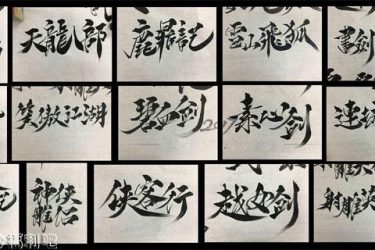 天龍八部
鹿鼎記
雪山飛狐
書剑
笑傲江湖
碧血剑
素心剑
连
神雕侠侣
侠客行
越女剑
射雕英
福利吧